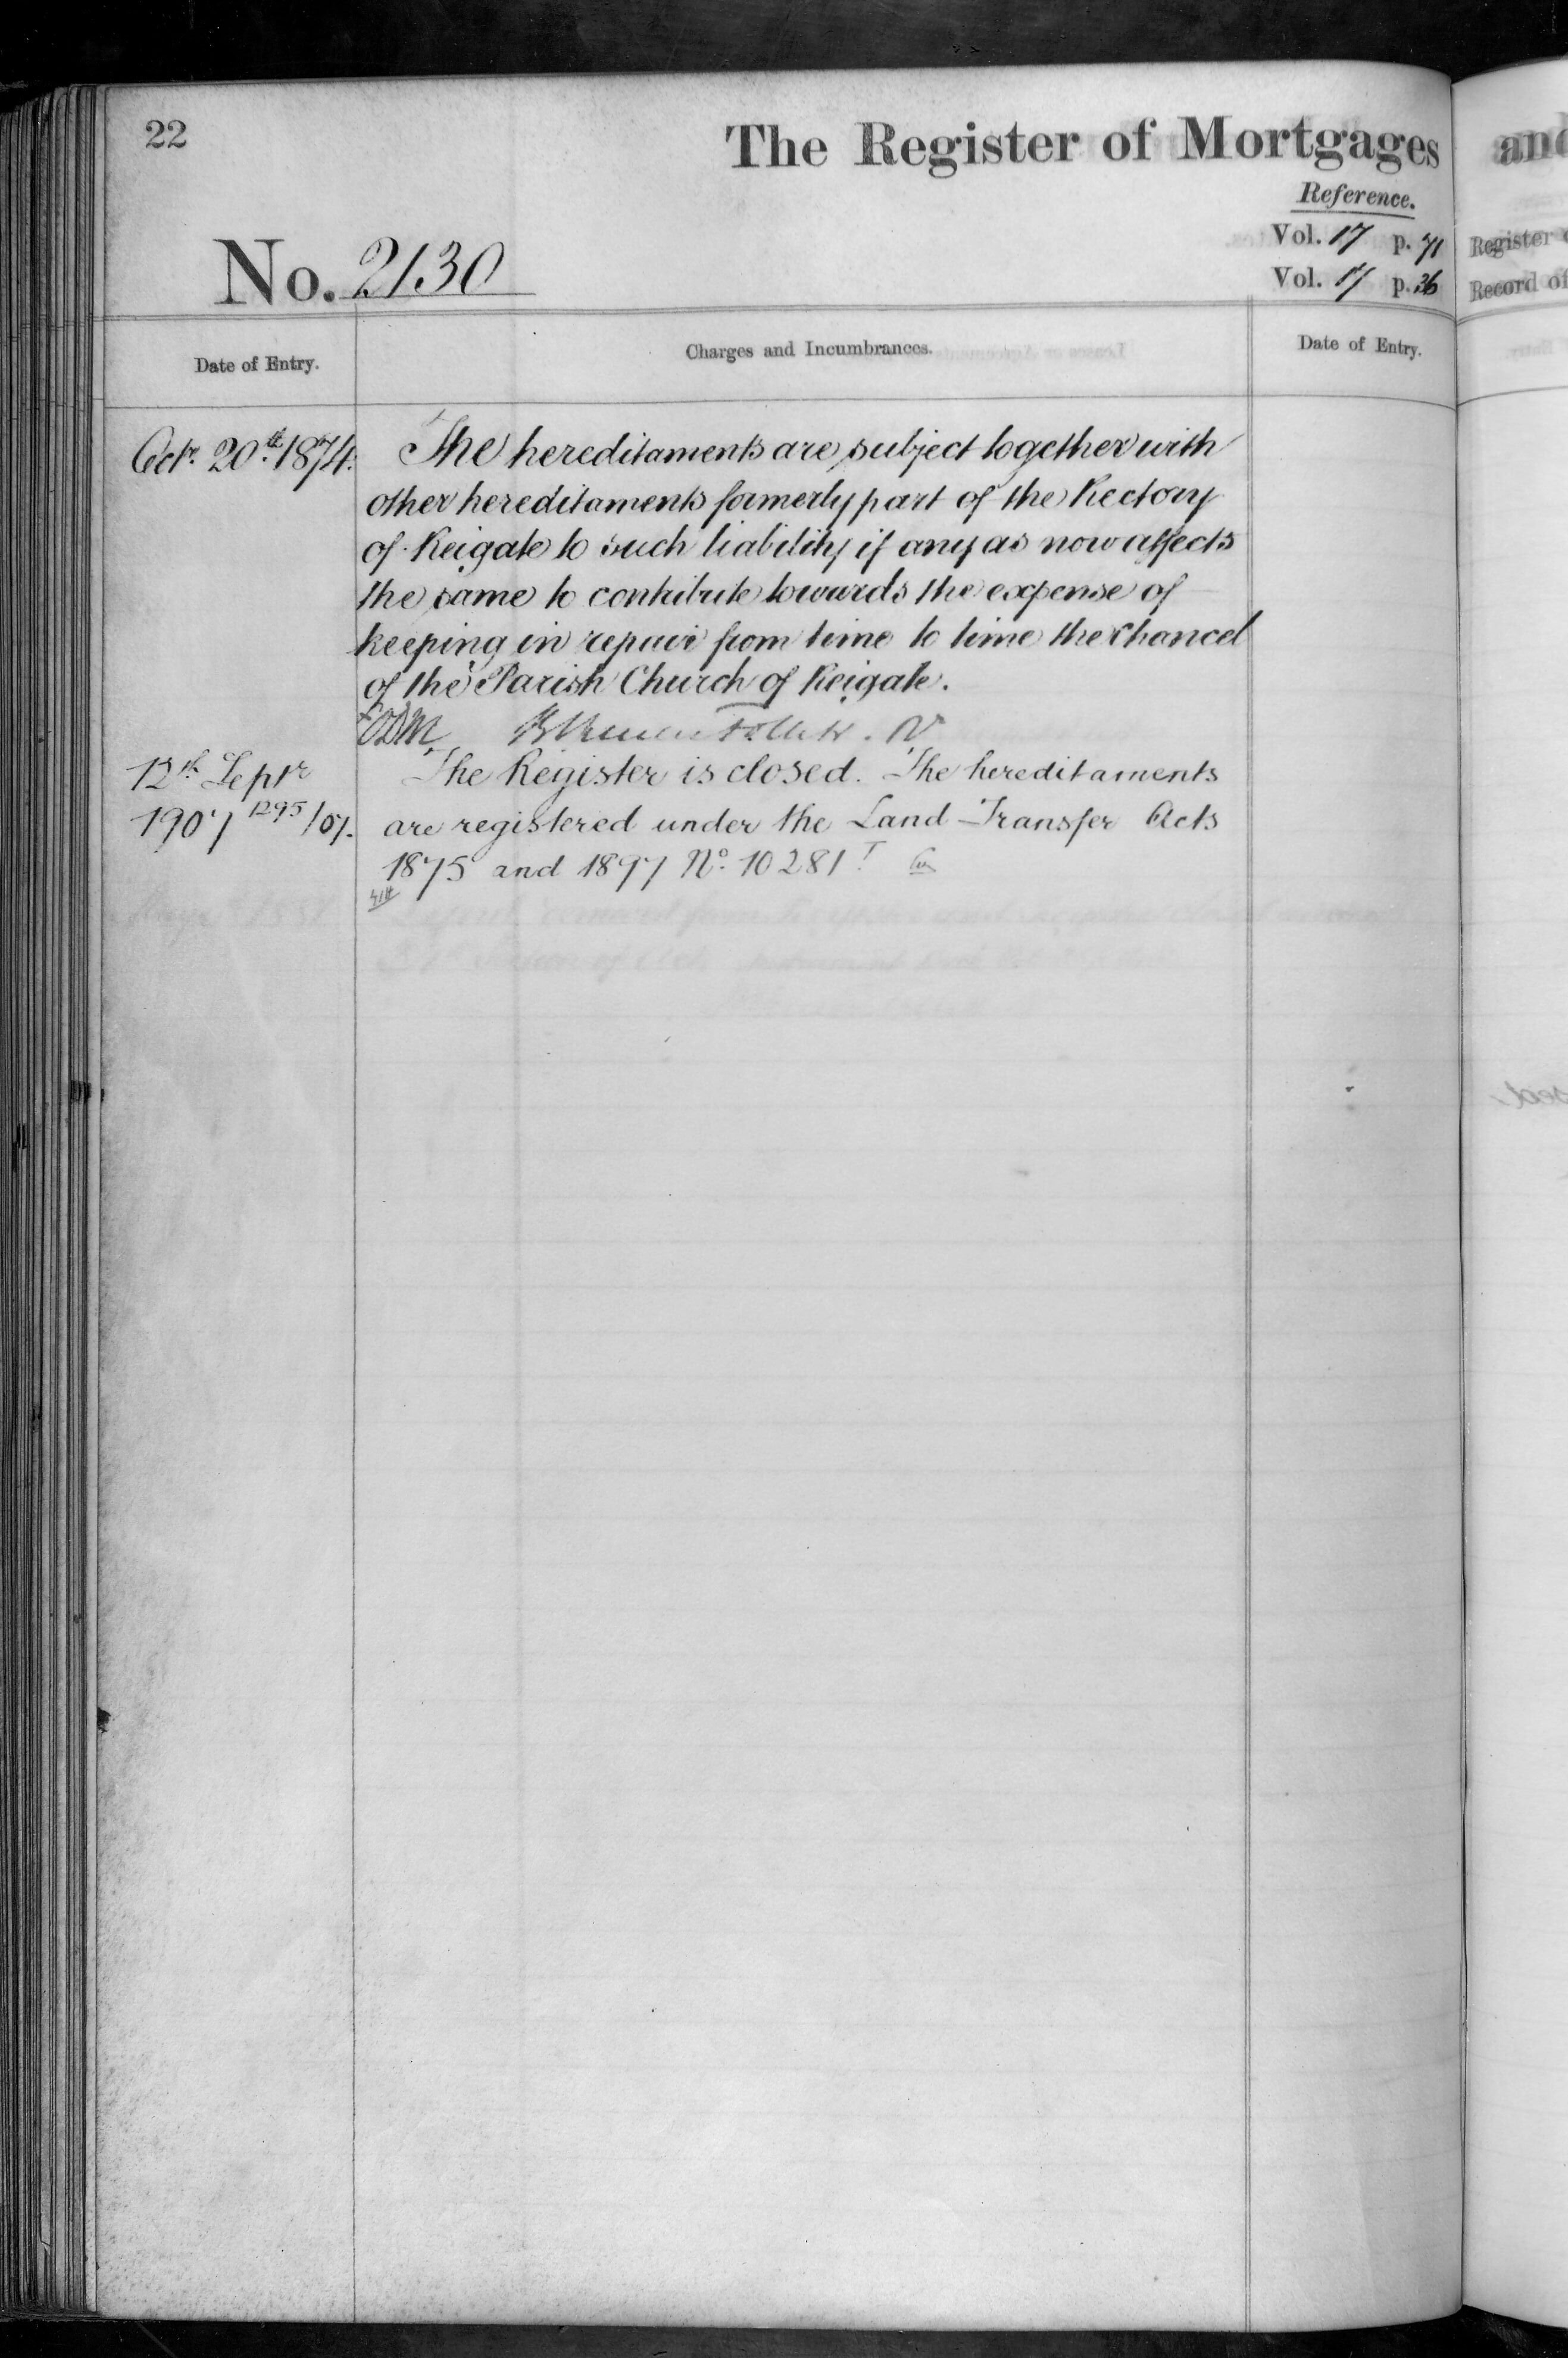 22
The Register of Mortgages
and
Reference.
Vol. 17 p. 71
Register
Vol. 17 p. 36
Record of
No. 2130
Date of Entry.
Charges and Incumbrances.
Date of Entry.
Octr. 20th. 1874.
The hereditaments are subject together with
other hereditaments formerly part of the Rectory
of Reigate to such liability if any as now affects
the same to contribute towards the expense of
keeping in repair from time to time the Chancel
of the Parish Church of Reigate.
12th Septr
1907 1295/07.
The Register is closed. The hereditaments
are registered under the Land Transfer Acts
1875 and 1897 No. 10281